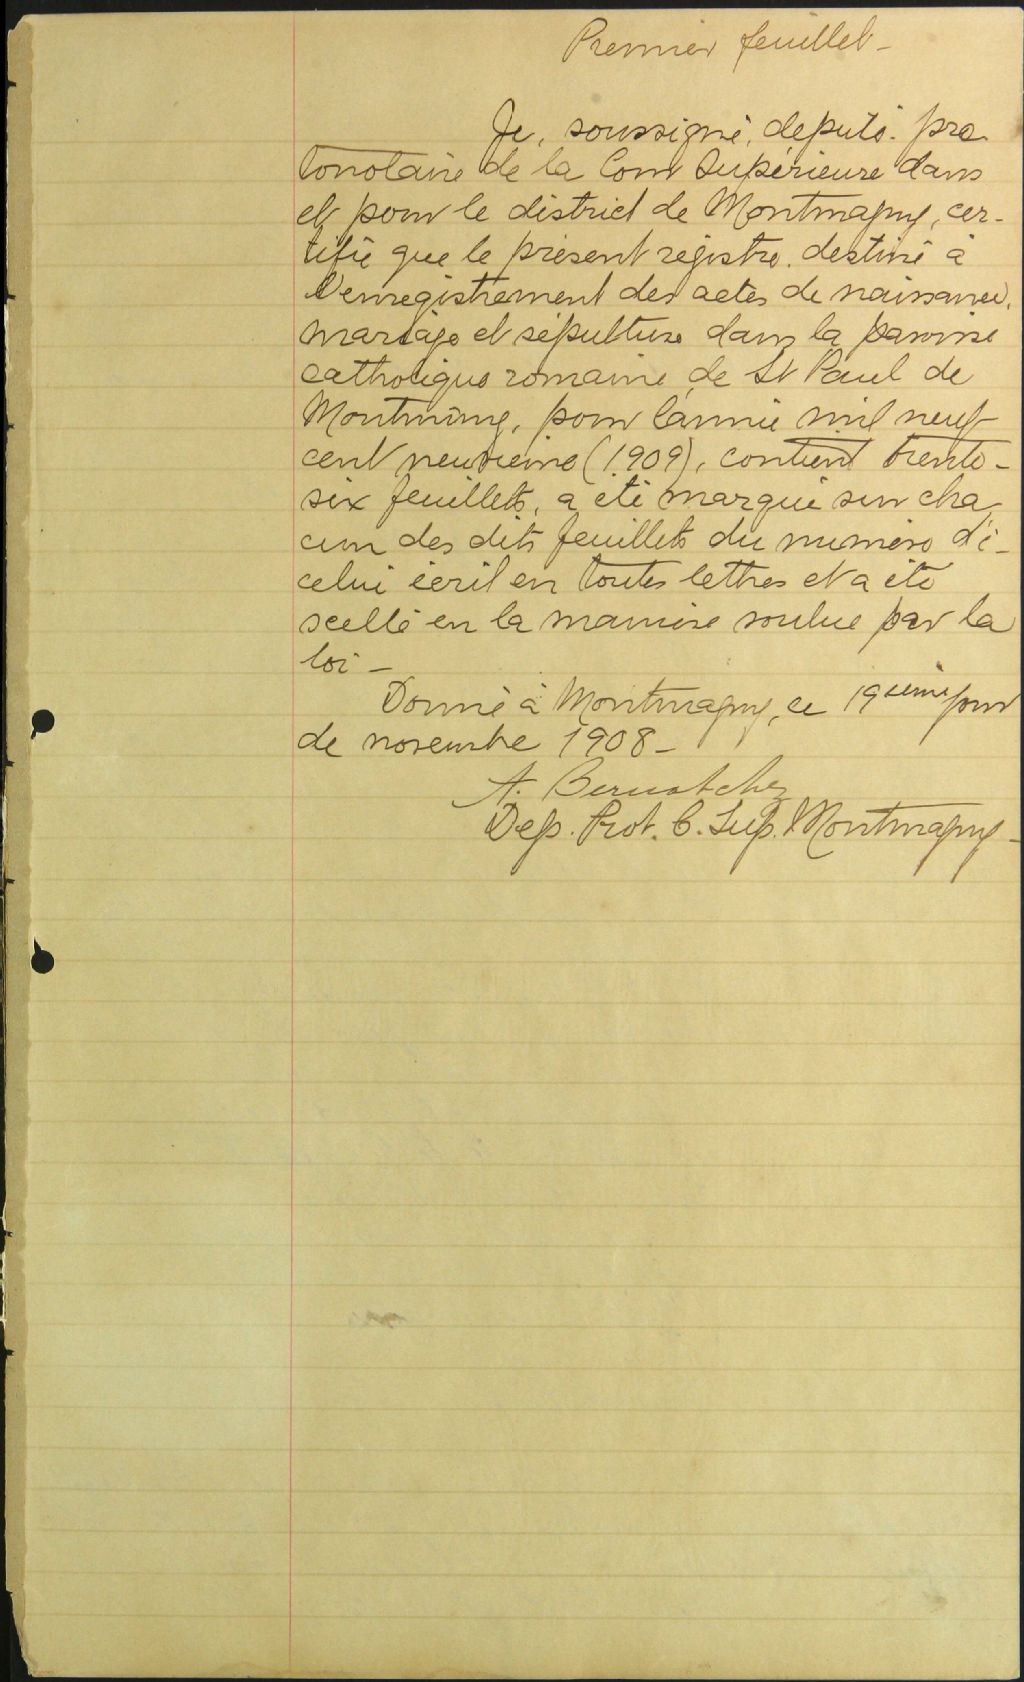 Premier feuillet -
Je, soussigné, député-pro
tonotaire de la Cour Supérieure dans
et pour le district de Montmagny, cer-
tifie que le présent régistre, destiné à
l'enregistrement des actes de naissance,
mariage et sépulture dans la paroisse
catholique romaine de St Paul de
Montminy, pour l'année mil neuf
cent neuvième (1909), contient trente-
six feuillets, a été marqué sur cha
cun des dits feuillets du numéro d'i-
celui écrit en toutes lettres et a été
scellé en la manière voulue par la
loi -
Donné à Montmagny, ce 19ième jour
de novembre 1908 -
A. Bernatchez
Dep. Prot. C. Sup. Montmagny -